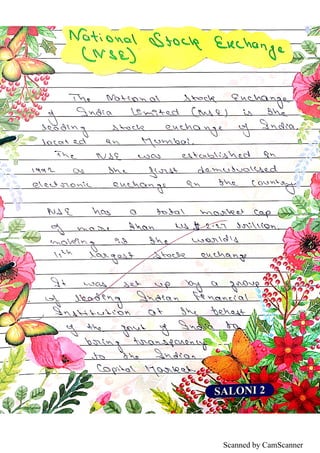 National Stock Exchange
(NSE)
The National Stock Exchange
of India Limited (NSE) is the
leading stock exchange of India
located in Mumbai.
The NSE was established in
1992 as the first demutualised
electronic exchange in the country
NSE has a total market cap
of more than US $ 2.27 trillion
making it the world's
11th largest stock exchange
It was set up by a group
of leading Indian financial
Institution at the behest
of the govt of India to
bring transparency
to the Indian
Capital Market
SALONI 2
Scanned by CamScanner